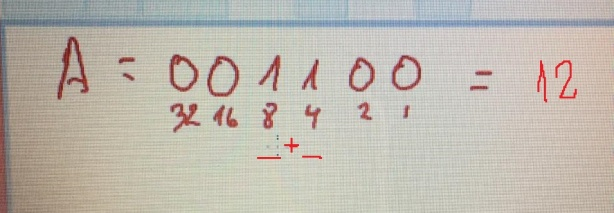 A = 001100 = 12
32 16 8 4 2 1
_+_